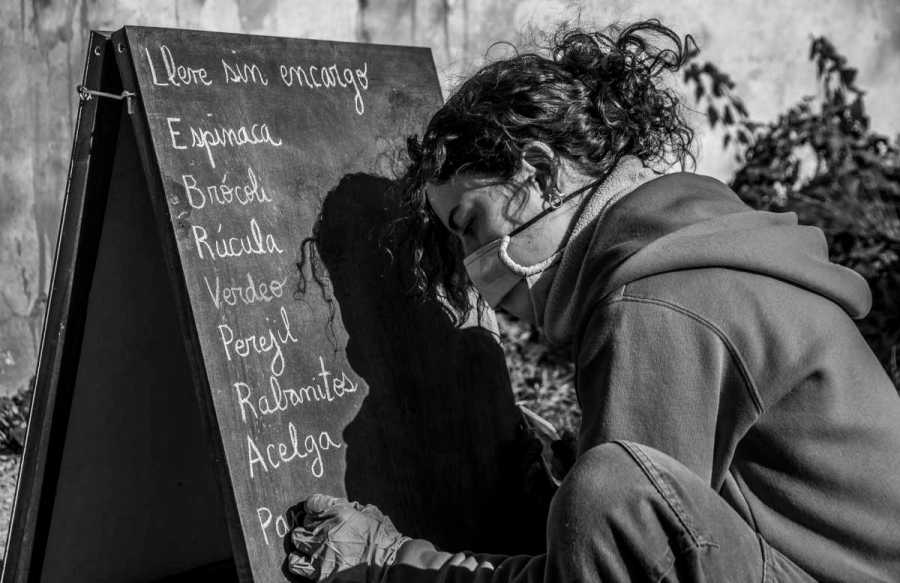 Lleve sin encargo
Espinaca
Brócoli
Rúcula
Verdeo
Perejil
Rabanitos
Acelga
Pa